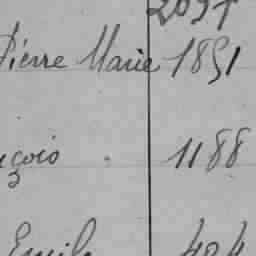 Pierre Marie 1851
çois 1188
Emile 404